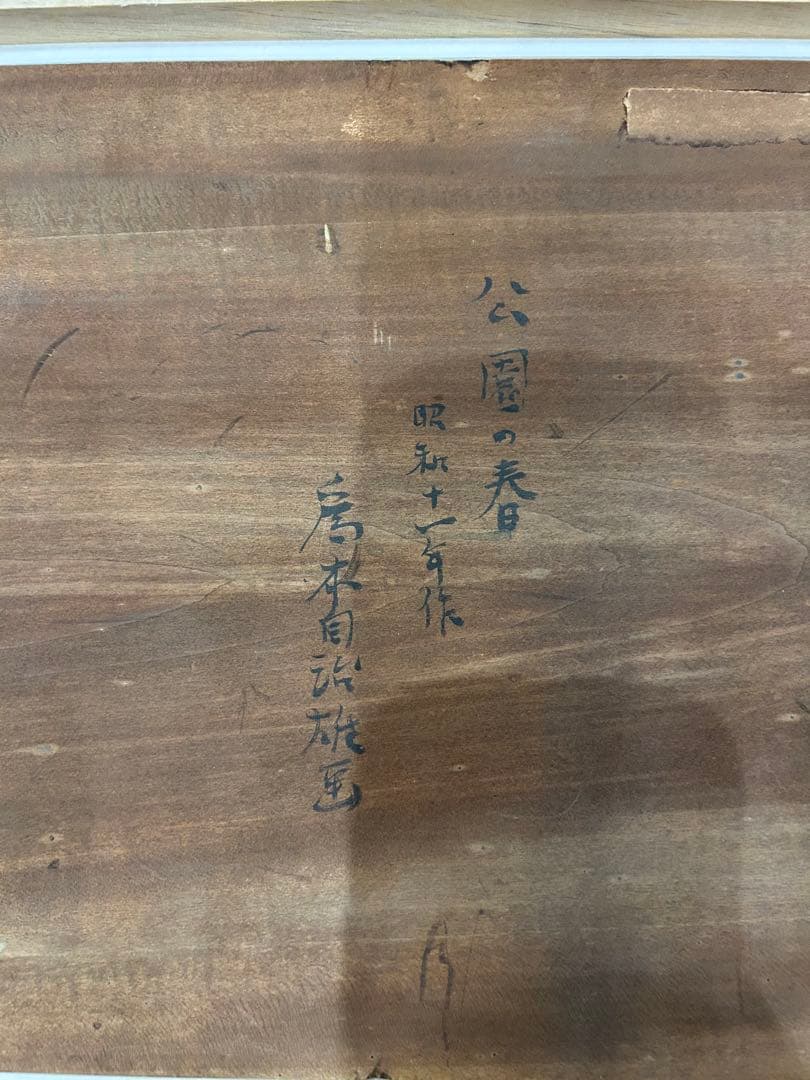 公園の春
昭和十一年作
為本自治雄画